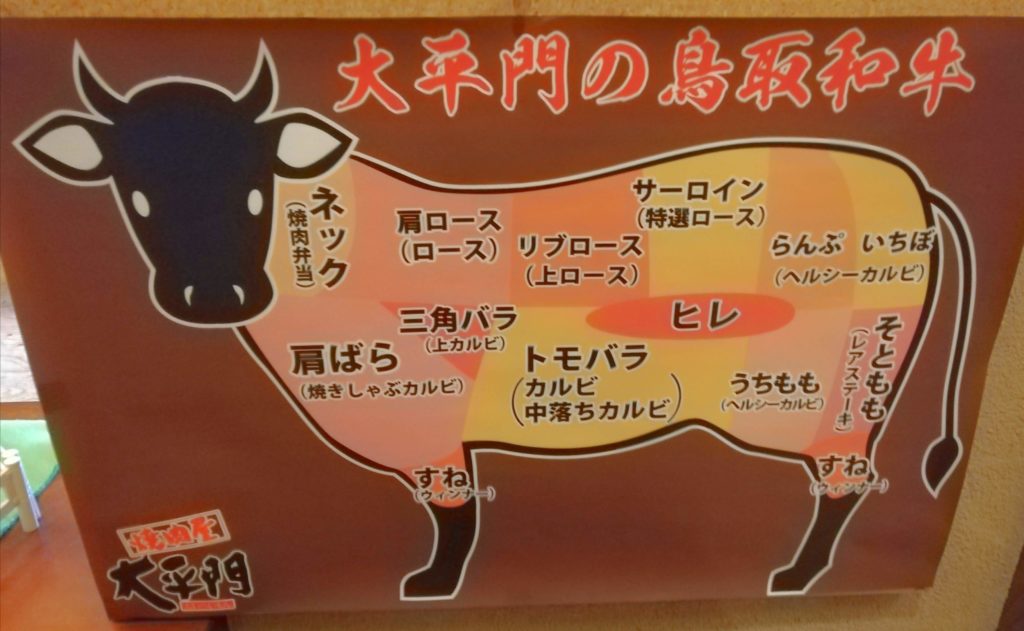 大平門の鳥取和牛
ネック
(焼肉弁当)
肩ロース
(ロース)
リブロース
(上ロース)
サーロイン
(特選ロース)
らんぷ いちぼ
(ヘルシーカルビ)
三角バラ
(上カルビ)
ヒレ
肩ばら
(焼きしゃぶカルビ)
トモバラ
(カルビ
中落ちカルビ)
うちもも
(ヘルシーカルビ)
そともも
(レアステーキ)
すね
(ウィンナー)
すね
(ウィンナー)
焼肉屋
大平門